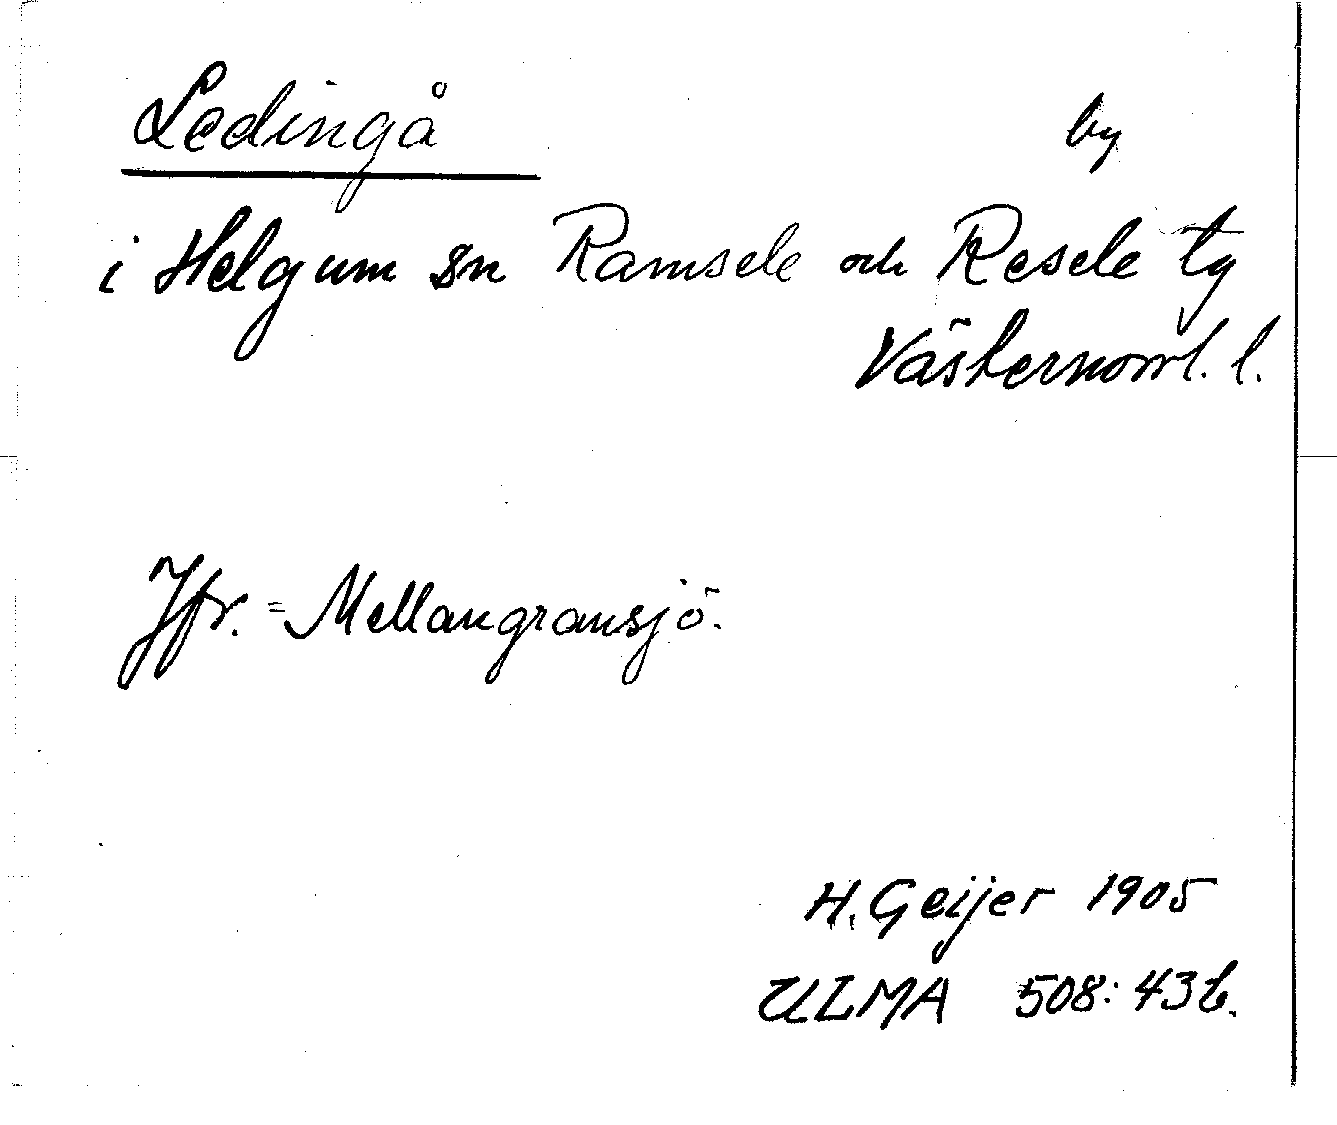 Ledingå by
i Helgum sn Ramsele och Resele tg
Västernorrl. l.
Jfr. = Mellangransjö.
H. Geijer 1905
ULMA 508: 43 b.